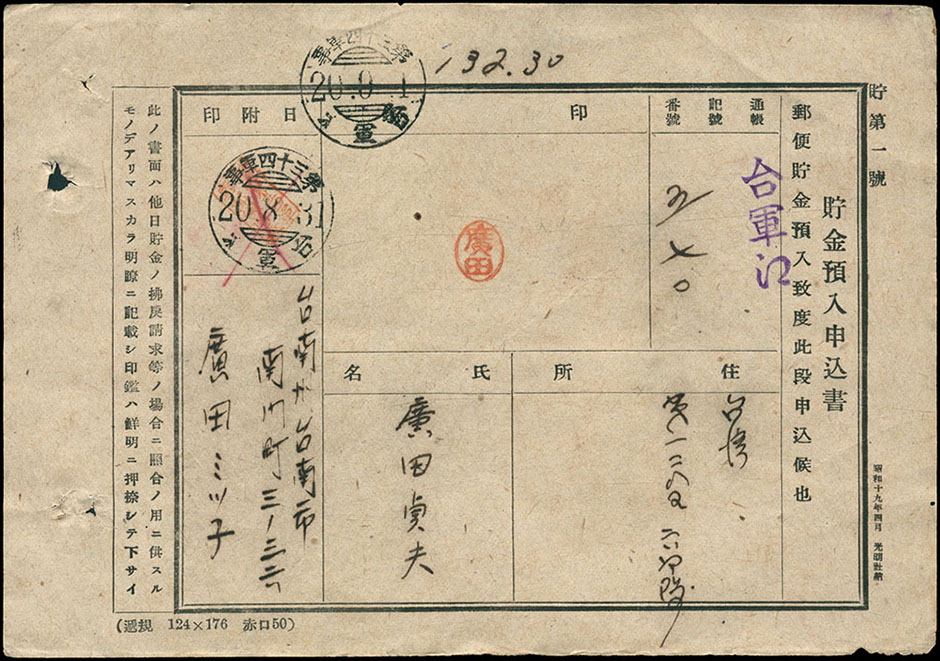 132.30
貯第一號
貯金預入申込書
郵便貯金預入致度此段申込候也
昭和十九年四月 光明社納
通帳
記號
番號
台軍江
印
廣田
日附印
第三十四軍事
20.9.1
第三十四軍事
20.8.31
住所
氏名
廣田貞夫
台南州台南市
南門町三ノ三六
廣田ミツ子
此ノ書面ハ他日貯金ノ拂戻請求等ノ場合ニ照合ノ用ニ供スル
モノデアリマスカラ明瞭ニ記載シ印鑑ハ鮮明ニ押捺シテ下サイ
(遞規 124×176 赤口50)